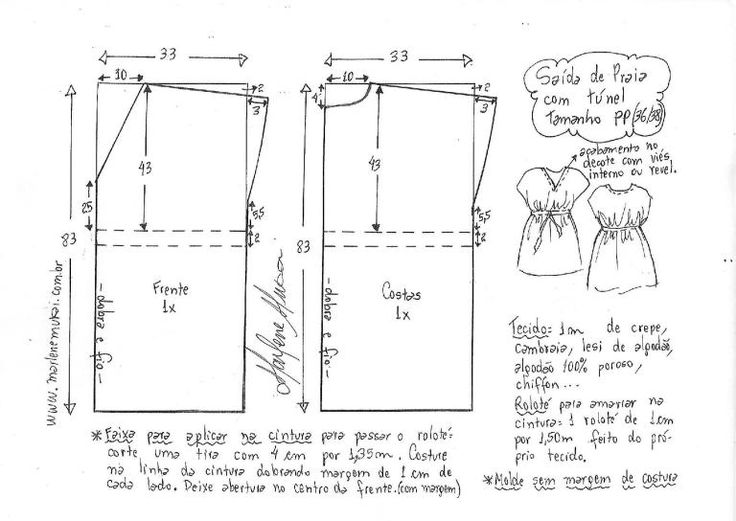 33
10
2
3
83
43
25
5,5
2
Frente
1x
-dobra e fio-
www.marlenemukai.com.br
Marlene Mukai
33
10
4
3
83
43
5,5
2
Costas
1x
-dobra e fio-
Saída de Praia
com túnel
Tamanho PP(36/38)
acabamento no
decote com viés
interno ou revel.
Tecido: 1m de crepe,
cambraia, lesi de algodão,
algodão 100% poroso,
chiffon...
Roloté para amarrar na
cintura: 1 roloté de 1cm
por 1,50m feito do pró-
prio tecido.
* Faixa para aplicar na cintura para passar o roloté:
corte uma tira com 4cm por 1,35m. Costure
na linha da cintura dobrando margem de 1cm de
cada lado. Deixe abertura no centro da frente.(com margem)
*Molde sem margem de costura